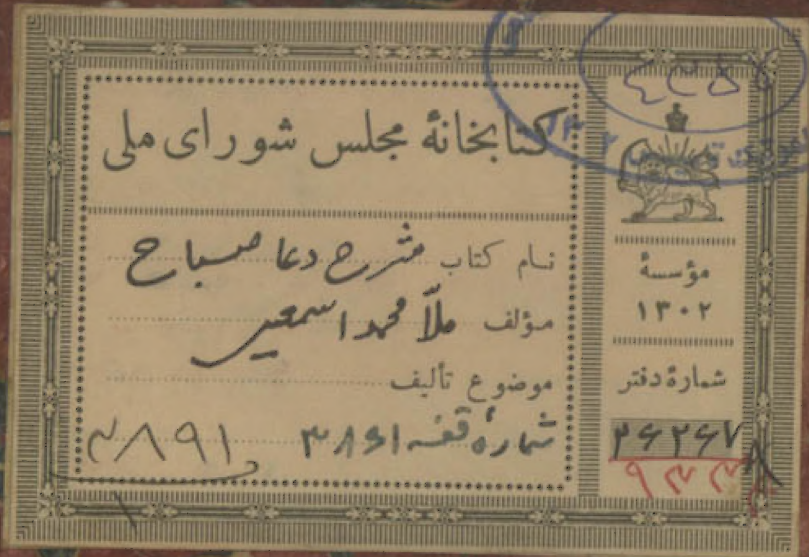 کتابخانهٔ مجلس شورای ملی
نام کتاب شرح دعا صباح
مؤلف ملّا محمد اسمعیل
موضوع تألیف
شمارهٔ قفسه ۳۸۶۱
۸۹۱
مؤسسهٔ
۱۳۰۲
شمارهٔ دفتر
۲۶۲۶۷